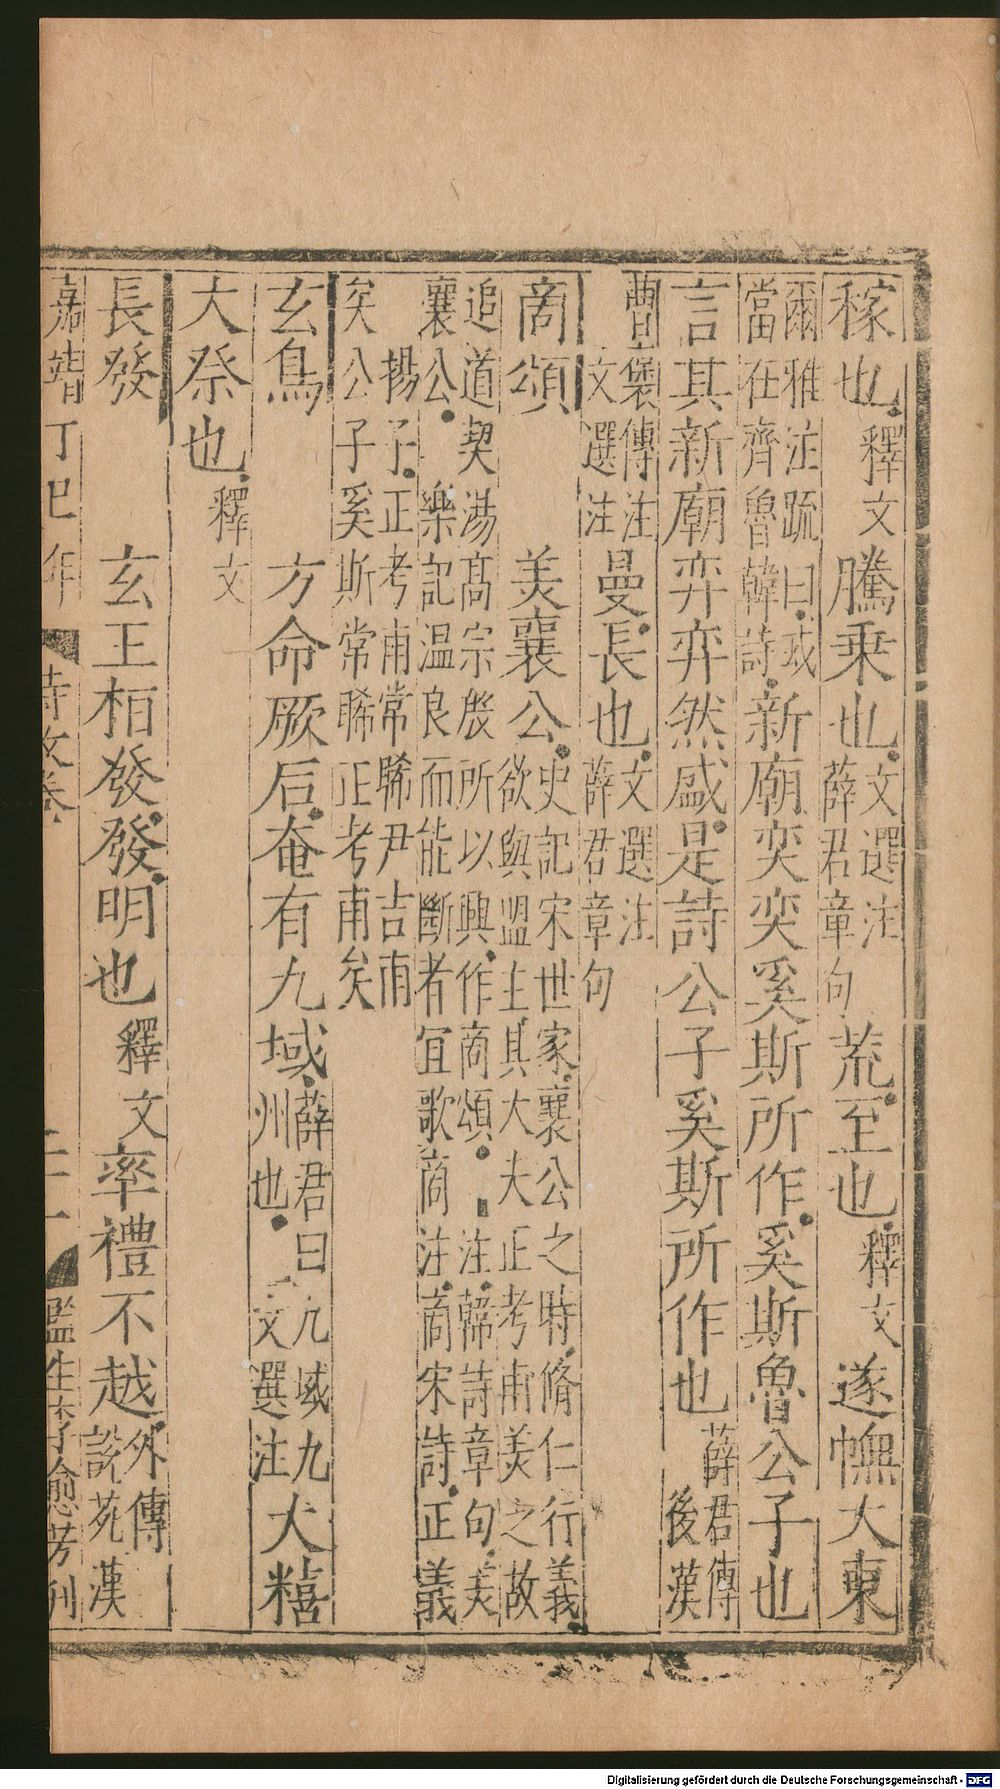 稼也釋文騰乗也文選注薛君章句荒至也釋文遂幠大東
爾雅注䟽曰或當在齊魯韓詩新廟奕奕奚斯所作奚斯魯公子也
言其新廟弈弈然盛是詩公子奚斯所作也薛君傳後漢
曹褒傳注文選注曼長也文選注薛君章句
商頌 美襄公史記宋世家襄公之時脩仁行義欲與盟主其大夫正考甫美之故
追道契湯髙宗殷所以興作商頌 注韓詩章句美襄公 樂記温良而能斷者宜歌商注商宋詩正義
揚子正考甫常睎尹吉甫矣公子奚斯常睎正考甫矣
玄鳥 方命厥后奄有九域薛君曰九域九州也 文選注大糦
大祭也釋文
長發 玄王桓發發明也釋文率禮不越外傳說苑漢
嘉靖丁巳年 詩攷卷 二十一 監生李子愈芳刊
Digitalisierung gefördert durch die Deutsche Forschungsgemeinschaft - DFG